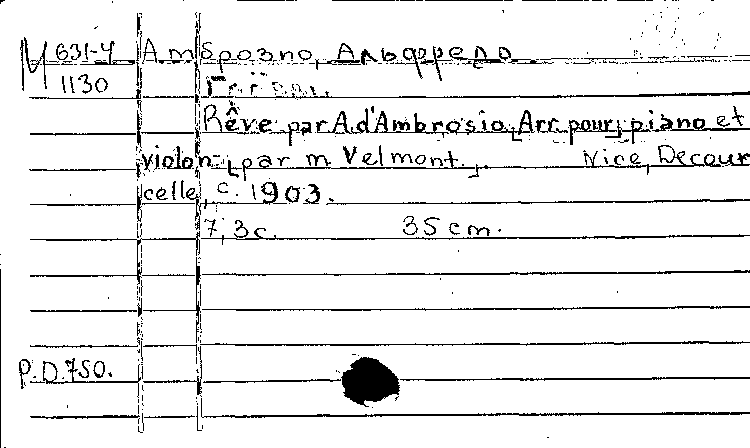 М 631-4 Амброзио, Альфредо
1130
Rêve par A. d'Ambrosio, Arr. pour piano et
violon [par M Velmont.]. Nice, Decour
celle, c. 1903.
7, 3 c. 35 cm.
P.D.750.